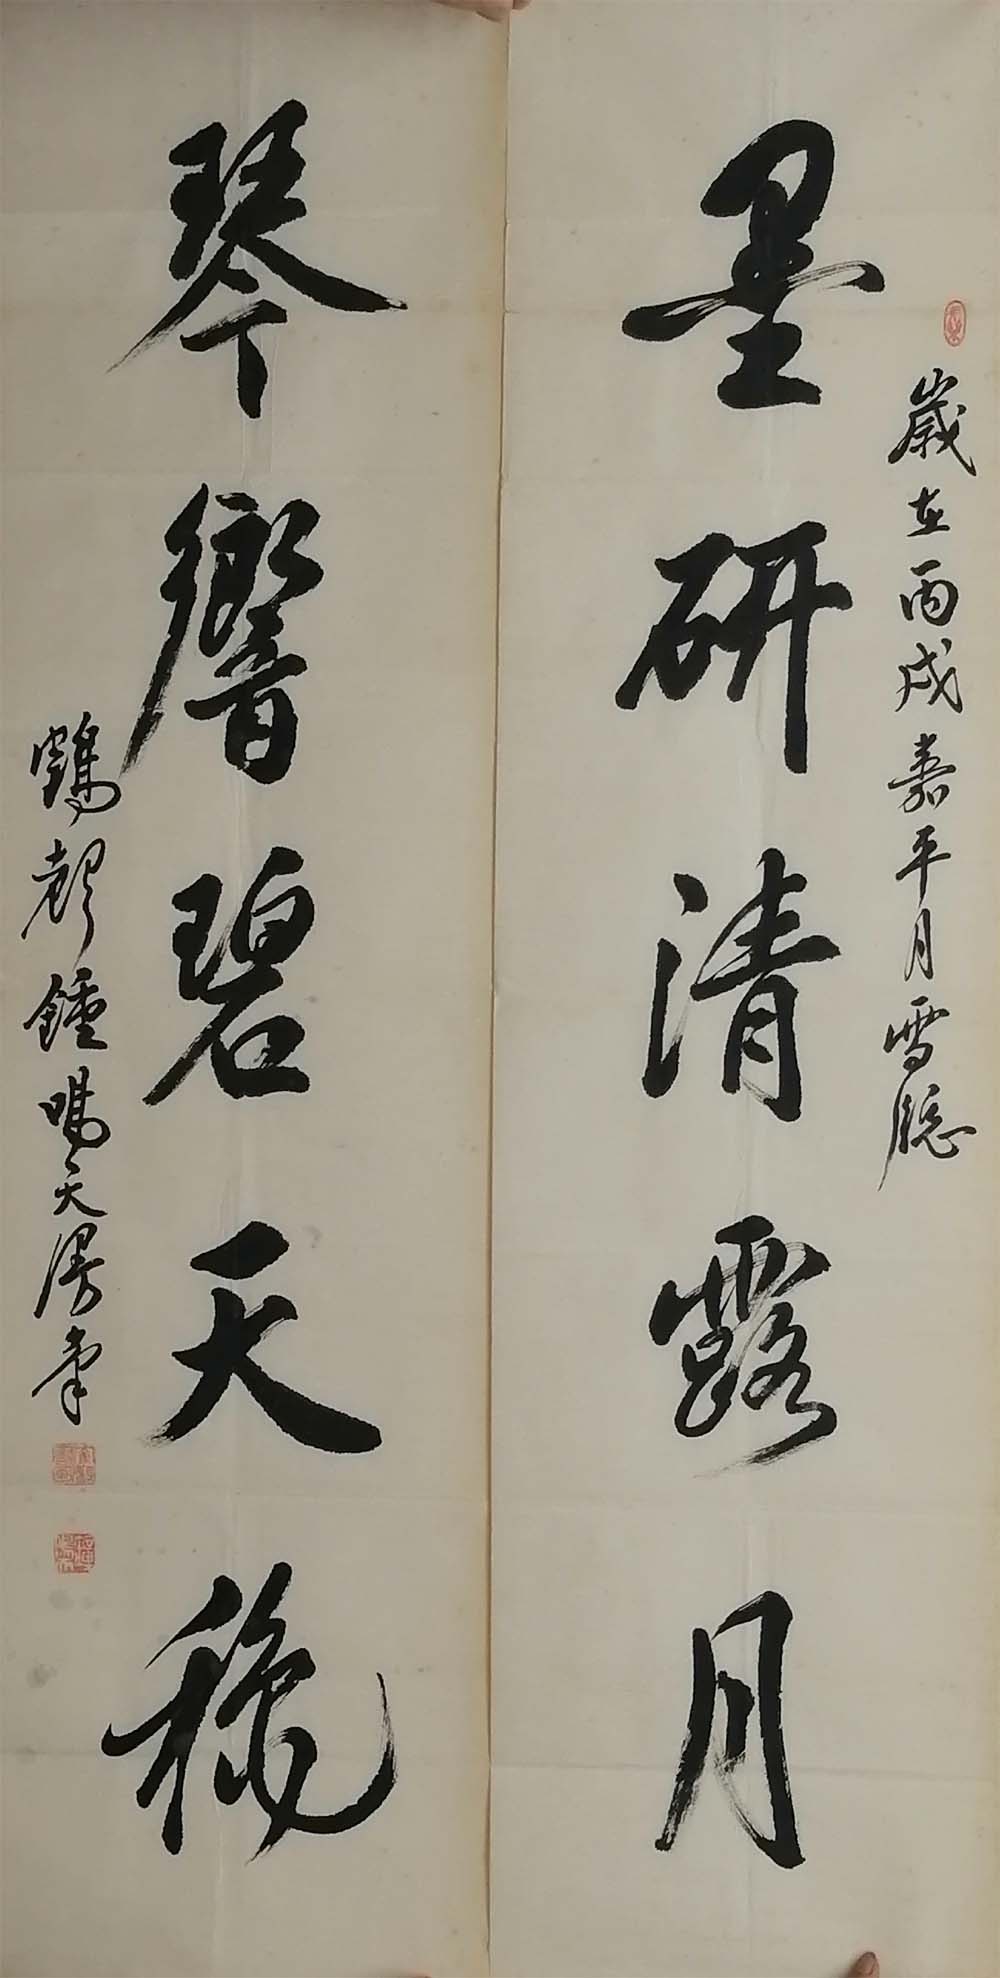 歲在丙戌嘉平月雪牕
墨研清露月
琴響碧天穐
鶴鍾鳴天漫筆